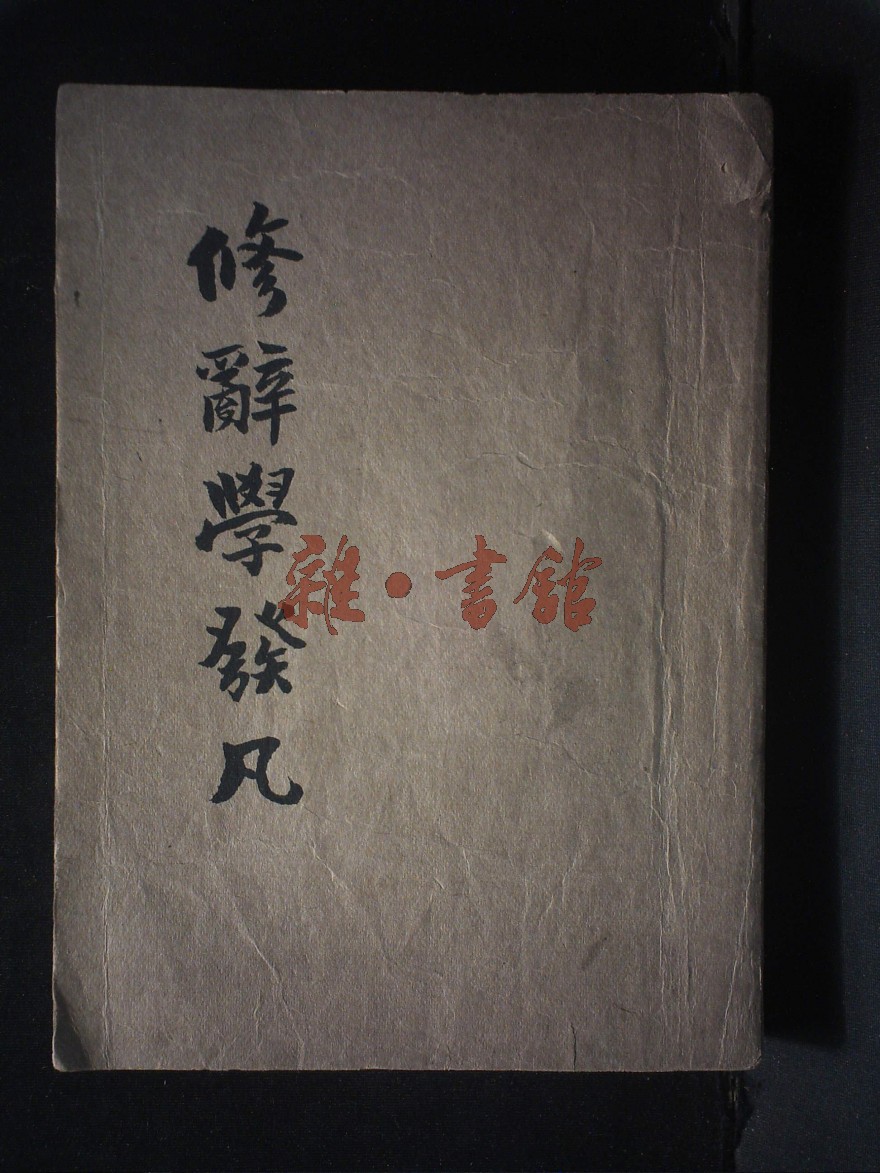 修辭學發凡
雜·書館